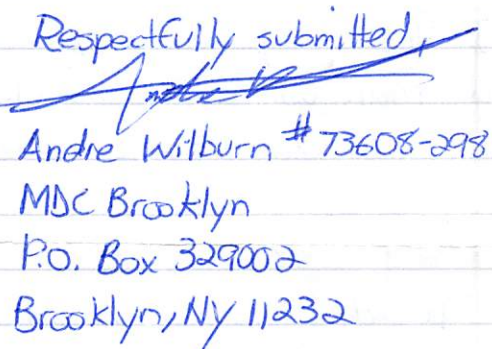 Respectfully submitted,
Andre Wilburn #73608-298
MDC Brooklyn
P.O. Box 329002
Brooklyn, NY 11232